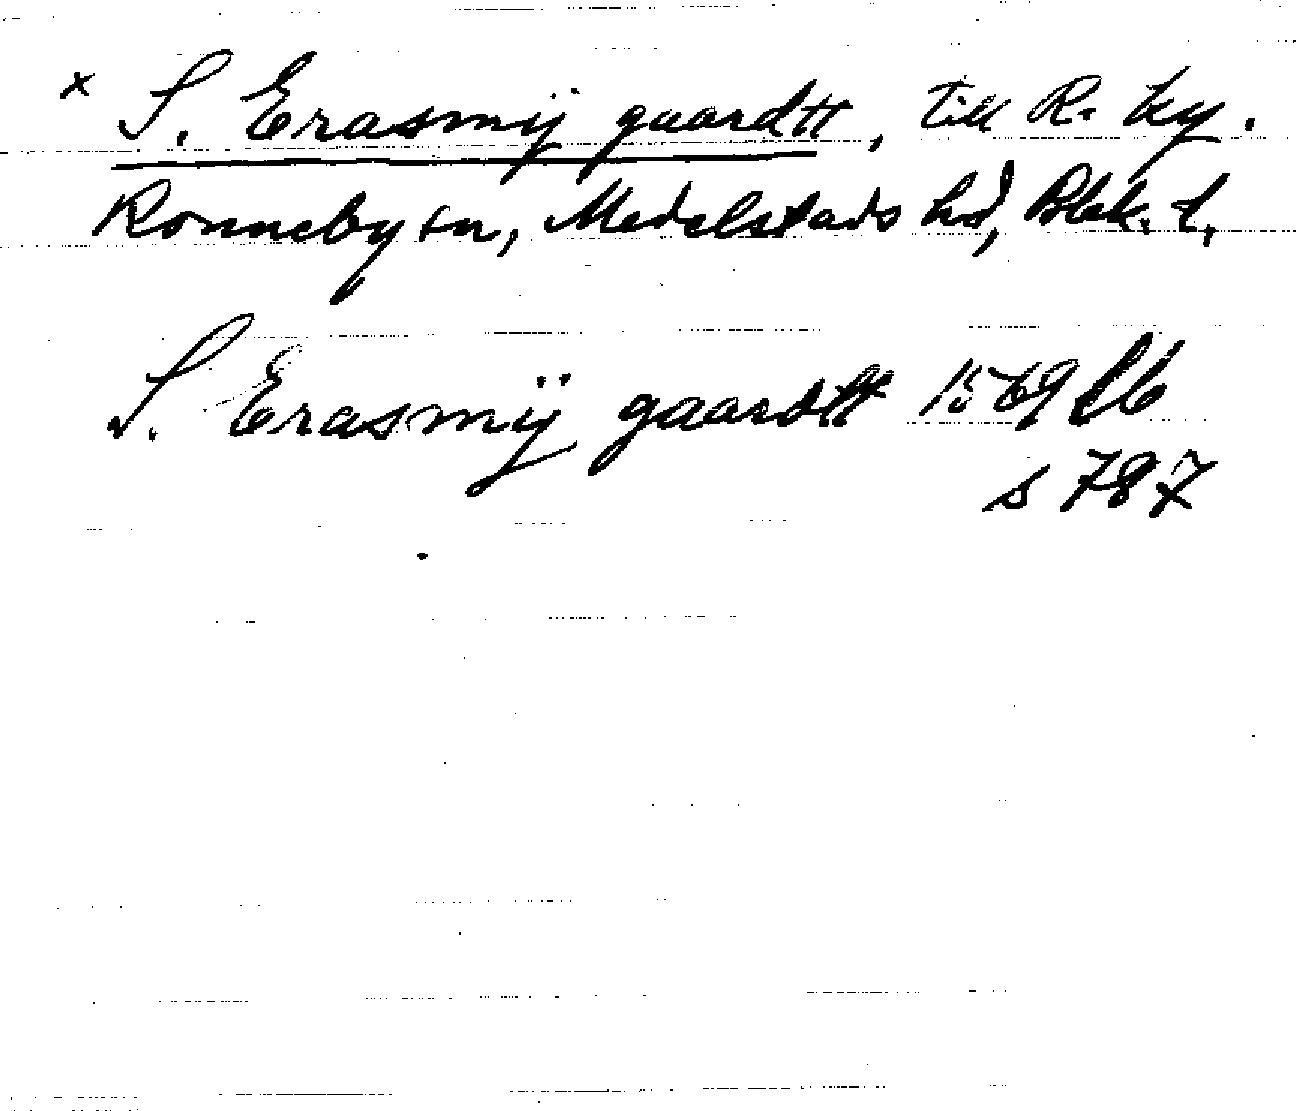 x S. Erasmij gaardtt, till R. ky.
Ronneby sn, Medelstads hd, Blek. l,
S. Erasmij gaardtt 1569 Lb
s 787